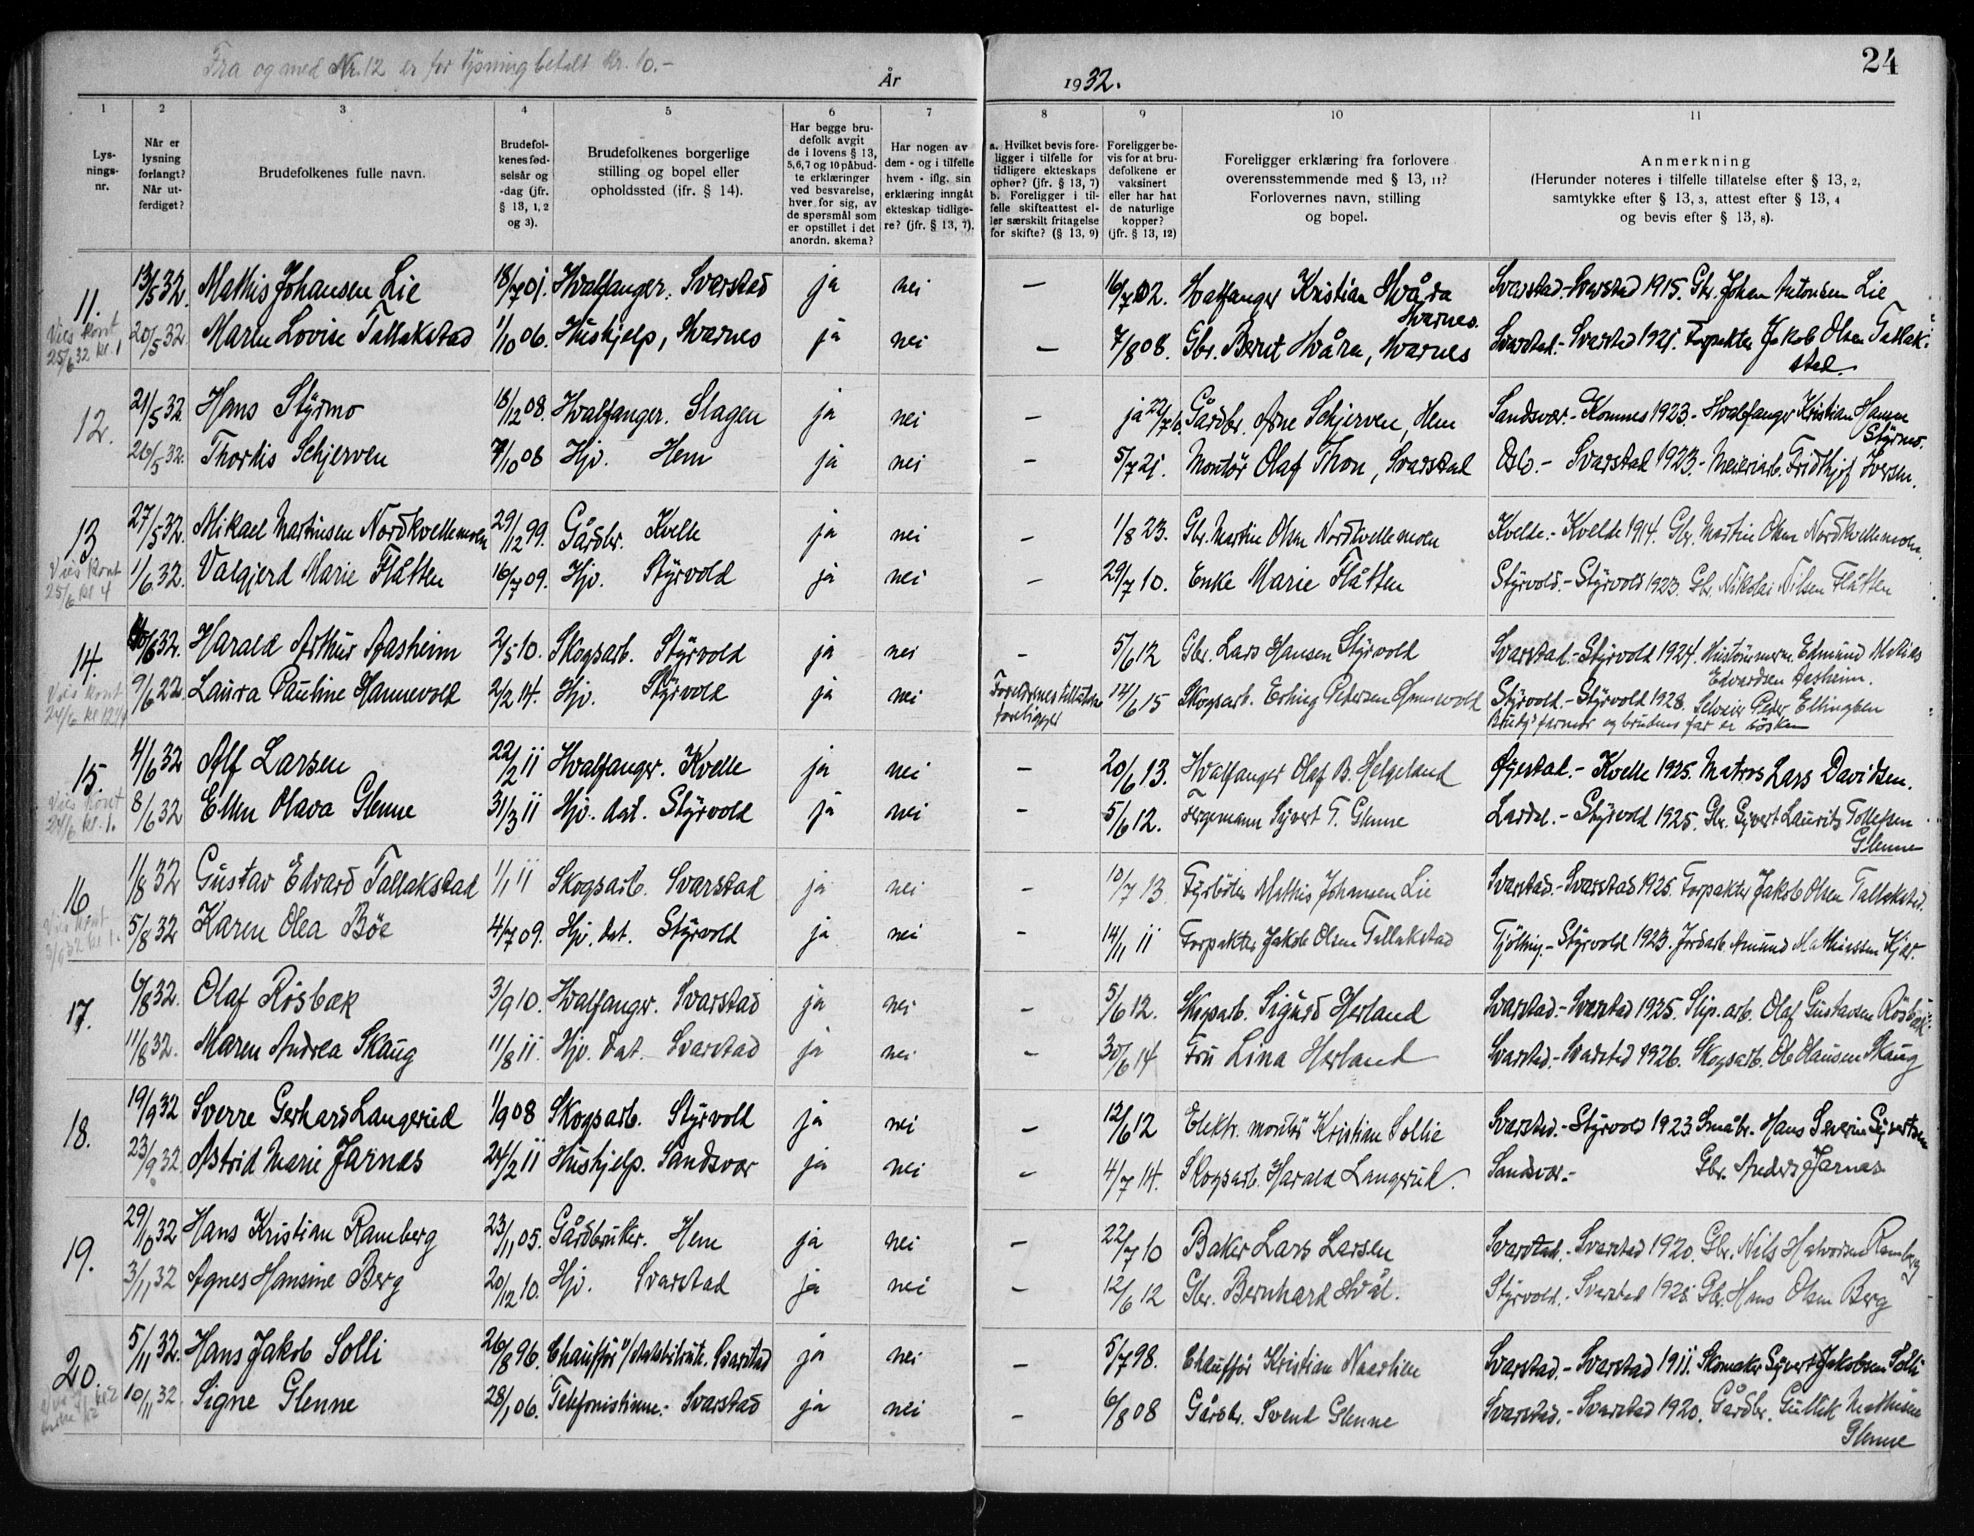 Fra og med Nr. 12 er for lysning betalt kr. 10.-
År 1932.
24
1 2 3 4 5 6 7 8 9 10 11
Lys-
nings-
nr.
Når er
lysning
forlangt?
Når ut-
ferdiget?
Brudefolkenes fulle navn.
Brudefol-
kenes fød-
selsår og
-dag (jfr.
§ 13, 1, 2
og 3).
Brudefolkenes borgerlige
stilling og bopel eller
opholdssted (ifr. § 14).
Har begge bru-
defolk avgit
de i lovens § 13,
5,6,7 og 10 påbud-
te erklæringer
ved besvarelse,
hver for sig, av
de spørsmål som
er opstillet i det
anordn. skema?
Har nogen av
dem - og i tilfelle
hvem - iflg. sin
erklæring inngåt
ekteskap tidlige-
re? (jfr. § 13, 7).
a. Hvilket bevis fore-
ligger i tilfelle for
tidligere ekteskaps
ophør? (jfr. § 13, 7)
b. Foreligger i til-
felle skifteattest el-
ler særskilt fritagelse
for skifte? (§ 13, 9)
Foreligger be-
vis for at bru-
defolkene er
vaksinert
eller har hat
de naturlige
kopper?
(jfr. § 13, 12)
Foreligger erklæring fra forlovere
overensstemmende med § 13, 11?
Forlovernes navn, stilling
og bopel.
Anmerkning
(Herunder noteres i tilfelle tillatelse efter § 13, 2,
samtykke efter § 13, 3, attest efter § 13, 4
og bevis efter § 13, 8).
11. 13/5 32. Mathis Johansen Lie 18/7 01. Hvalfanger. Svarstad ja nei — 16/7 02. Hvalfanger Kristian Hvåra Hvarnes. Svarstad.- Svarstad 1915. Gbr. Johan Antonsen Lie
Vies kont 25/6 32 kl. 1 20/5 32 Maren Lovise Tallakstad 1/10 06. Hushjelp, Hvarnes ja nei — 7/8 08. Gbr. Bernt Hvåra, Hvarnes Svarstad.- Svarstad 1921. Forpakter Jakob Olsen Tallak-
stad.
12. 21/5 32 Hans Styrmo 18/12 08. Hvalfanger. Slagen ja nei — ja 22/7 Gårdbr. Arne Schjerven, Hem Sandsvær.- Komnes 1923.- Hvalfanger Kristian Hansen
Styrmo.
26/5 32. Thordis Schjerven 7/10 08 Hjv. Hem ja nei — 5/7 21. Montør Olaf Thon, Svarstad Oslo.- Svarstad 1923.- Meieriarb. Fridthjof Iversen.
13 27/5 32. Mikael Martinsen Nordkvellemoen 29/12 99. Gårdbr. Kvelle ja nei — 1/8 23. Gbr. Martin Olsen Nordkvellemoen Kvelde.- Kvelde 1914. Gbr. Martin Olsen Nordkvellemoen.
Vies kont 25/6 kl 4 1/6 32. Valgjerd Marie Flåtten 16/7 09. Hjv. Styrvold ja nei — 29/7 10. Enke Marie Flåtten Styrvold.- Styrvold 1923. Gbr. Nikolai Nilsen Flåtten
14. 6/32. Harald Arthur Aasheim 2/5 10. Skogsarb. Styrvold ja nei — 5/6 12 Gbr. Lars Hansen Styrvold Svarstad.- Styrvold 1924. Edmund Matias
Edvardsen Aasheim.
Vies kont 24/6 9/6 22. Laura Pauline Hannevold 2/2 14. Hjv. Styrvold ja nei Foreldrenes tillatelse foreligger 14/6 15 Skogsarb. Erling Pedersen Hannevold Styrvold.- Styrvold 1928. Selveier Peder Ellingsen
Brudg's farmor og brudens far er søsken
15. 4/6 32 Alf Larsen 22/2 11 Hvalfanger. Kvelle ja nei — 20/6 13. Hvalfanger Olaf B. Helgeland Øyestad.- Kvelle 1925. Matros Lars Davidsen.
Vies kont 24/6 kl. 1. 8/6 32 Ellen Olava Glenne 31/3 11 Hjv. dat. Styrvold ja nei — 5/6 12. Fergemann Syvert T. Glenne Lardal.- Styrvold 1925. Gbr. Syvert Laurits Tollefsen
Glenne
16 1/8 32 Gustav Edvard Tallakstad 1/1 11 Skogsarb. Svarstad ja nei — 10/7 13 Fyrbøter Mathis Johansen Lie Svarstad.- Svarstad 1925. Forpakter Jakob Olsen Tallakstad.
Vies kont kl 1. 5/8 32 Karen Olea Bøe 4/7 09. Hjv. dat. Styrvold ja nei — 14/11 11 Forpakter Jakob Olsen Tallakstad Tjølling.- Styrvold 1923. Jordarb. Amund Mathiassen Kjær.
17. 6/8 32. Olaf Rösbæk 3/9 10. Hvalfanger. Svarstad ja nei — 5/6 12. Skogsarb. Sigurd Herland Svarstad.- Svarstad 1925. Slip. arb. Olaf Gustavsen Rösbæk.
11/8 32. Maren Andrea Skaug 11/8 11. Hjv. dat. Svarstad ja nei — 30/6 14 Fru Lina Herland Svarstad.- Svarstad 1926. Skogsarb. Ole Olausen Skaug
18. 19/9 32 Sverre Gerhard Langerud 1/9 08 Skogsarb. Styrvold ja nei — 12/6 12 Elektr. montør Kristian Sollie Svarstad.- Styrvold 1923. Småbr. Hans Severin Syvertsen
23/9 32 Astrid Marie Jarnes 24/2 11 Hushjelp. Sandsvær ja nei — 4/7 14. Skogsarb. Harald Langerud. Sandsvær.- Gbr. Anders Jarnes
19. 29/10 32 Hans Kristian Ramberg 23/11 05. Gårdbruker. Hem ja nei — 22/7 10 Baker Lars Larsen Svarstad.- Svarstad 1920. Gbr. Nils Halvorsen Ramberg
3/11 32 Agnes Hansine Berg 20/12 10. Hjv. Svarstad ja nei — 12/6 12 Gbr. Bernhard Hvål. Styrvold.- Svarstad 1925. Gbr. Hans Olsen Berg
20. 5/11 32. Hans Jakob Solli 26/8 96. Chauffør Svarstad ja nei — 5/7 98. Chauffør Kristian Naartien Svarstad.- Svarstad 1911. Skomaker Syvert Jakobsen Solli
10/11 32. Signe Glenne 28/1 06. Telefonistinne.- Svarstad ja nei — 6/8 08 Gårdbr. Svend Glenne Svarstad.- Svarstad 1920. Gårdbr. Gullik Mathisen
Glenne